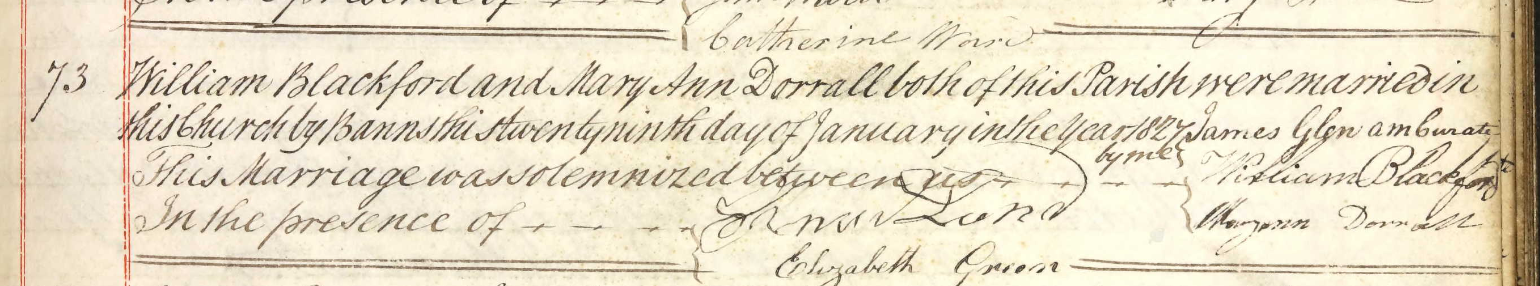 In the presence of
Catherine Ward
73 William Blackford and Mary Ann Dorrall both of this Parish were married in
this Church by Banns this twentyninth day of January in the Year 1827 James Glen am Curate
by me
This Marriage was solemnized between us William Blackford
Maryann Dorrall
In the presence of Lund
Elizabeth Green